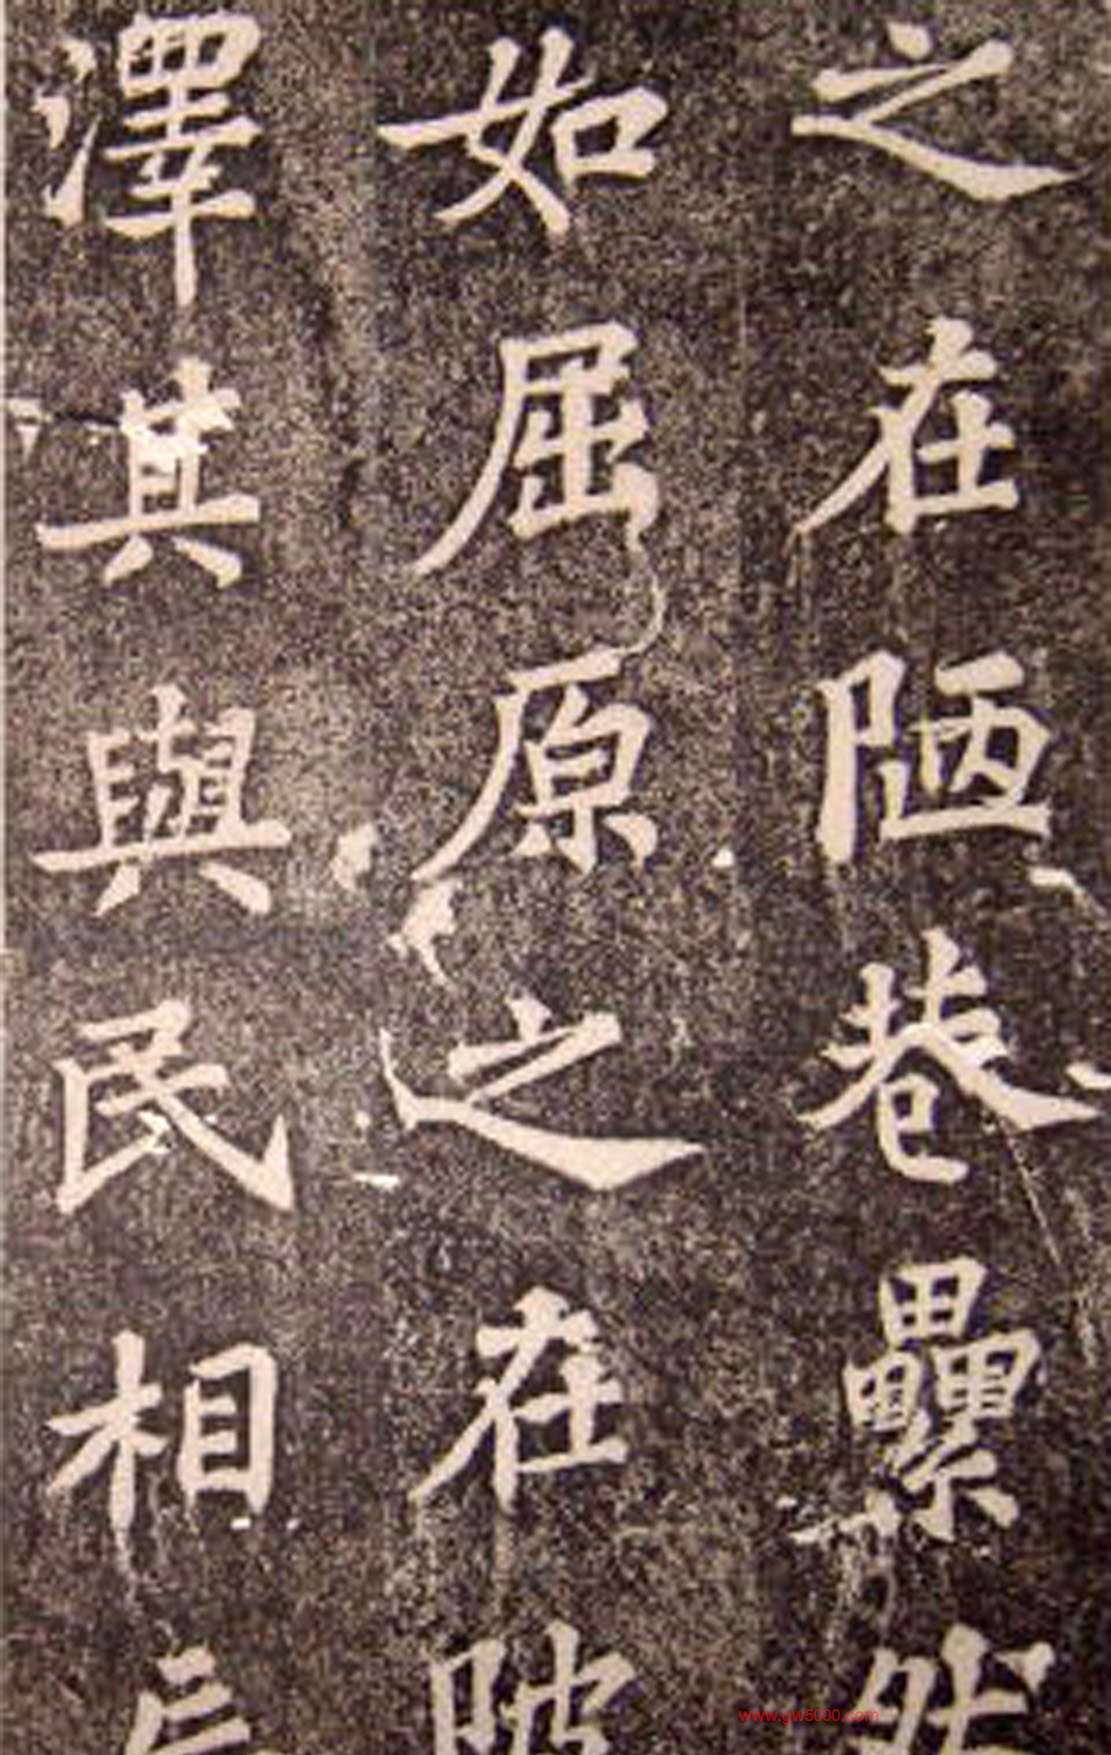 之在陋巷纍然
如屈原之在陂
澤其與民相
www.gw5000.com